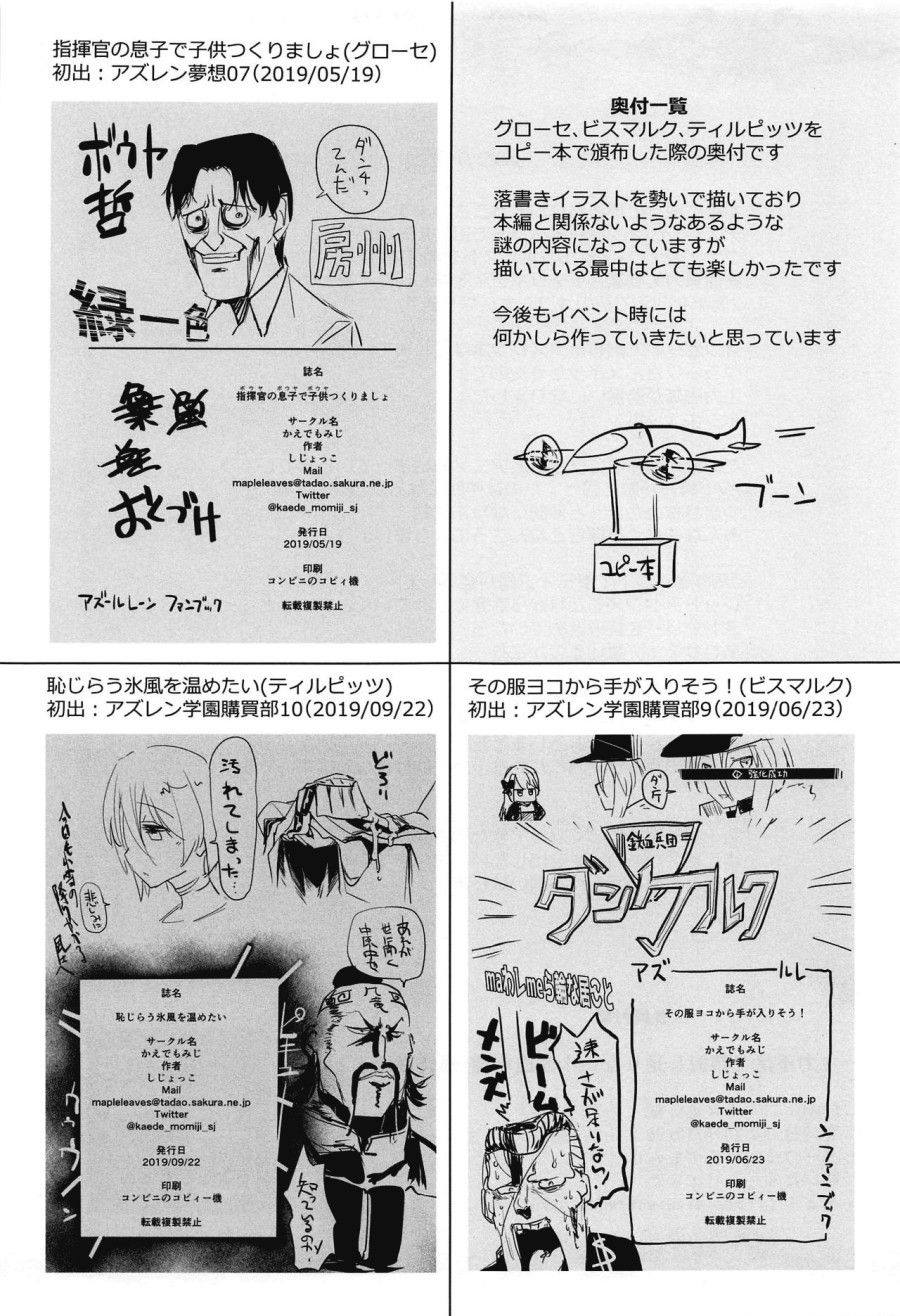 指揮官の息子で子供つくりましょ(グローセ)
初出：アズレン夢想07(2019/05/19)
ボウヤ
哲
ダンチっ
てんだ
房州
緑一色
おとづけ
アズールレーン ファンブック
誌名
ボウヤ ボウヤ ボウヤ
指揮官の息子で子供つくりましょ
サークル名
かえでもみじ
作者
しじょっこ
Mail
mapleleaves@tadao.sakura.ne.jp
Twitter
@kaede_momiji_sj
発行日
2019/05/19
印刷
コンビニのコピィ機
転載複製禁止
奥付一覧
グローセ､ビスマルク､ティルピッツを
コピー本で頒布した際の奥付です
落書きイラストを勢いで描いており
本編と関係ないようなあるような
謎の内容になっていますが
描いている最中はとても楽しかったです
今後もイベント時には
何かしら作っていきたいと思っています
ブーン
コピー本
恥じらう氷風を温めたい(ティルピッツ)
初出：アズレン学園購買部10(2019/09/22)
汚れてしまった…
どろぉ
悲しみに
誌名
恥じらう氷風を温めたい
サークル名
かえでもみじ
作者
しじょっこ
Mail
mapleleaves@tadao.sakura.ne.jp
Twitter
@kaede_momiji_sj
発行日
2019/09/22
印刷
コンビニのコピィー機
転載複製禁止
知っているのか
その服ヨコから手が入りそう！(ビスマルク)
初出：アズレン学園購買部9(2019/06/23)
強化成功
ダンケ
鉄血兵団
ダンケルク
maわしmeら輪な居こと
アズールレーンファンブック
ビーム
メンズ
速さが足りない！
誌名
その服ヨコから手が入りそう！
サークル名
かえでもみじ
作者
しじょっこ
Mail
mapleleaves@tadao.sakura.ne.jp
Twitter
@kaede_momiji_sj
発行日
2019/06/23
印刷
コンビニのコピィー機
転載複製禁止